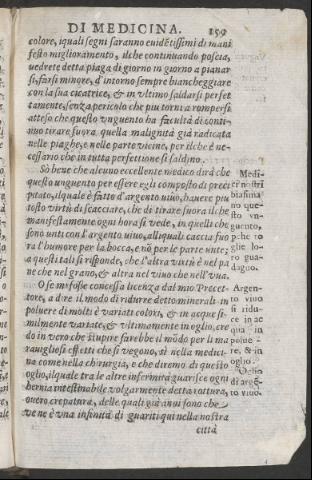 DI MEDICINA. 159
colore, iquali segni saranno euidẽtissimi di mani
festo miglioramento, ilche continuando poscia,
uedrete detta piaga di giorno in giorno a pianar
si, farsi minore, d'intorno sempre biancheggiare
con la sua cicatrice, & in vltimo saldarsi perfet
tamente, senza pericolo che piu torni a rompersi
atteso che questo vnguento ha facultà di conti-
nuo tirare fuora quella malignità già radicata
nelle piaghe, e nelle parte vicine, per ilche è ne-
cessario che in tutta perfettione si saldino.
Sò bene che alcuno eccellente medico dirà che
questo unguento per essere egli composto di preci
pitato, ilquale è fatto d'argento uiuo, hauere piu
tosto virtù di scacciare, che di tirare fuora il che
manifestamente ogni hora si vede, in quelli che
sono unti con l'argento uiuo, alliquali caccia fuo
ra l'humore per la bocca, e nõ per le parte unte;
a questi tali si risponde, che l'altra virtù è nel pa
ne che nel grano, & altra nel vino che nell'vua.
Medi-
ci nostri
biasima
no que-
sto vn-
guento,
ꝑche ro
glie lo-
ro gua-
dagno.
O se mi fosse concessa licenza dal mio Precet-
tore, a dire il modo di ridurre detto minerale in
poluere di molti è variati colori, & in acque si-
milmente variate, & vltimamente in oglio, cre
do in vero che stupire farebbe il mõdo per li ma
rauegliosi effetti che si vegono, sì nella medici-
na come nella chirurgia, e che diremo di questo
oglio, ilquale tra le altre infermità guarisce ogni
hernia intestinabile volgarmente detta rottura,
ouero crepatura, delle quali già anni sono che
ue ne è vna infinità di guariti qui nella nostra
Argen-
to viuo
si ridu-
ce in ac
qua in
polue -
re, & in
oglio.
Oglio
di argẽ-
to viuo.
città